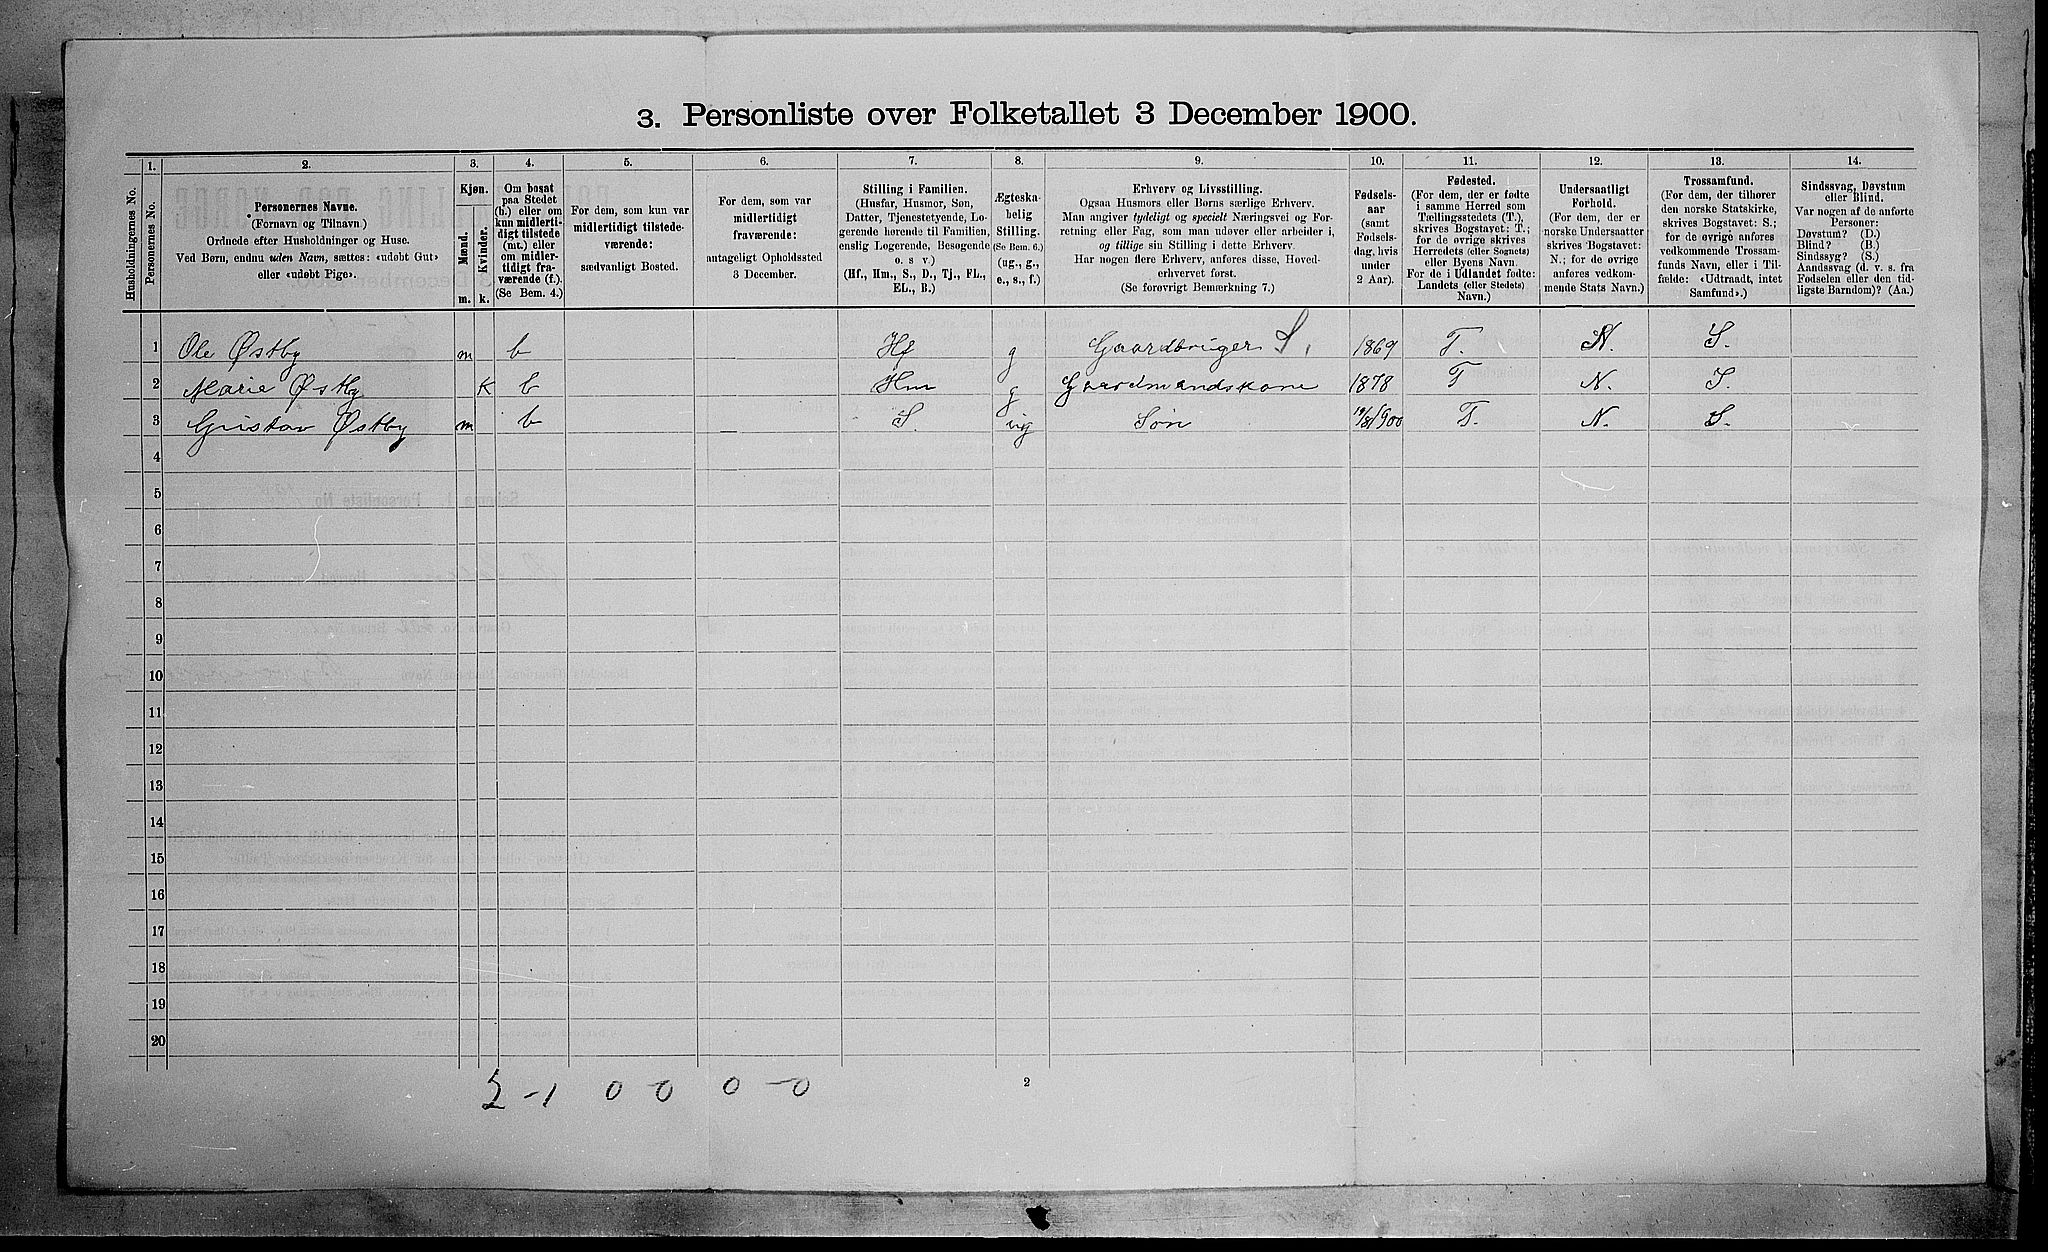 3. Personliste over Folketallet 3 December 1900.
1. 2. 3. 4. 5. 6. 7. 8. 9. 10. 11. 12. 13. 14.
Husholdningernes No.
Personernes No.
Personernes Navne.
(Fornavn og Tilnavn.)
Ordnede efter Husholdninger og Huse.
Ved Børn, endnu uden Navn, sættes: «udøbt Gut»
eller «udøbt Pige».
Kjøn.
Mænd.
Kvinder.
m. k.
Om bosat
paa Stedet
(b.) eller om
kun midlerti-
digt tilstede
(mt.) eller
om midler-
tidigt fra-
værende (f.).
(Se Bem. 4.)
For dem, som kun var
midlertidigt tilstede-
værende:
sædvanligt Bosted.
For dem, som var
midlertidigt
fraværende:
antageligt Opholdssted
3 December.
Stilling i Familien.
(Husfar, Husmor, Søn,
Datter, Tjenestetyende, Lo-
gerende hørende til Familien,
enslig Logerende, Besøgende
o. s v.)
(Hf., Hm., S., D., Tj., FL.,
EL., B.)
Ægteska-
belig
Stilling.
(Se Bem. 6.)
(ug., g.,
e., s., f.)
Erhverv og Livsstilling.
Ogsaa Husmors eller Børns særlige Erhverv.
Man angiver tydeligt og specielt Næringsvei og For-
retning eller Fag, som man udøver eller arbeider i,
og tillige sin Stilling i dette Erhverv.
Har nogen flere Erhverv, anføres disse, Hoved-
erhvervet først.
(Se forøvrigt Bemærkning 7.)
Fødsels-
aar
(samt
Fødsels-
dag, hvis
under
2 Aar).
Fødested.
(For dem, der er fødte
i samme Herred som
Tællingsstedets (T.),
skrives Bogstavet: T.;
for de øvrige skrives
Herredets (eller Sognets)
eller Byens Navn.
For de i Udlandet fødte:
Landets (eller Stedets)
Navn.)
Undersaatligt
Forhold.
(For dem, der er
norske Undersaatter
skrives Bogstavet:
N.; for de øvrige
anføres vedkom-
mende Stats Navn.)
Trossamfund.
(For dem, der tilhører
den norske Statskirke,
skrives Bogstavet: S.;
for de øvrige anføres
vedkommende Trossam-
funds Navn, eller i Til-
fælde: «Udtraadt, intet
Samfund».)
Sindssvag, Døvstum
eller Blind.
Var nogen af de anførte
Personer:
Døvstum? (D.)
Blind? (B.)
Sindssyg? (S.)
Aandssvag (d. v. s. fra
Fødselen eller den tid-
ligste Barndom)? (Aa.)
1 Ole Østby m b Hf g Gaardbruger S. 1869 T. N. S.
2 Marie Østby K b Hm g Gaardmandskone 1878 T N. S.
3 Gustav Østby m b S. ug Søn 19/8 1900 T. N. S.
4
5
6
7
8
9
10
11
12
13
14
15
16
17
18
19
20
2-1 0 0 0-0
2